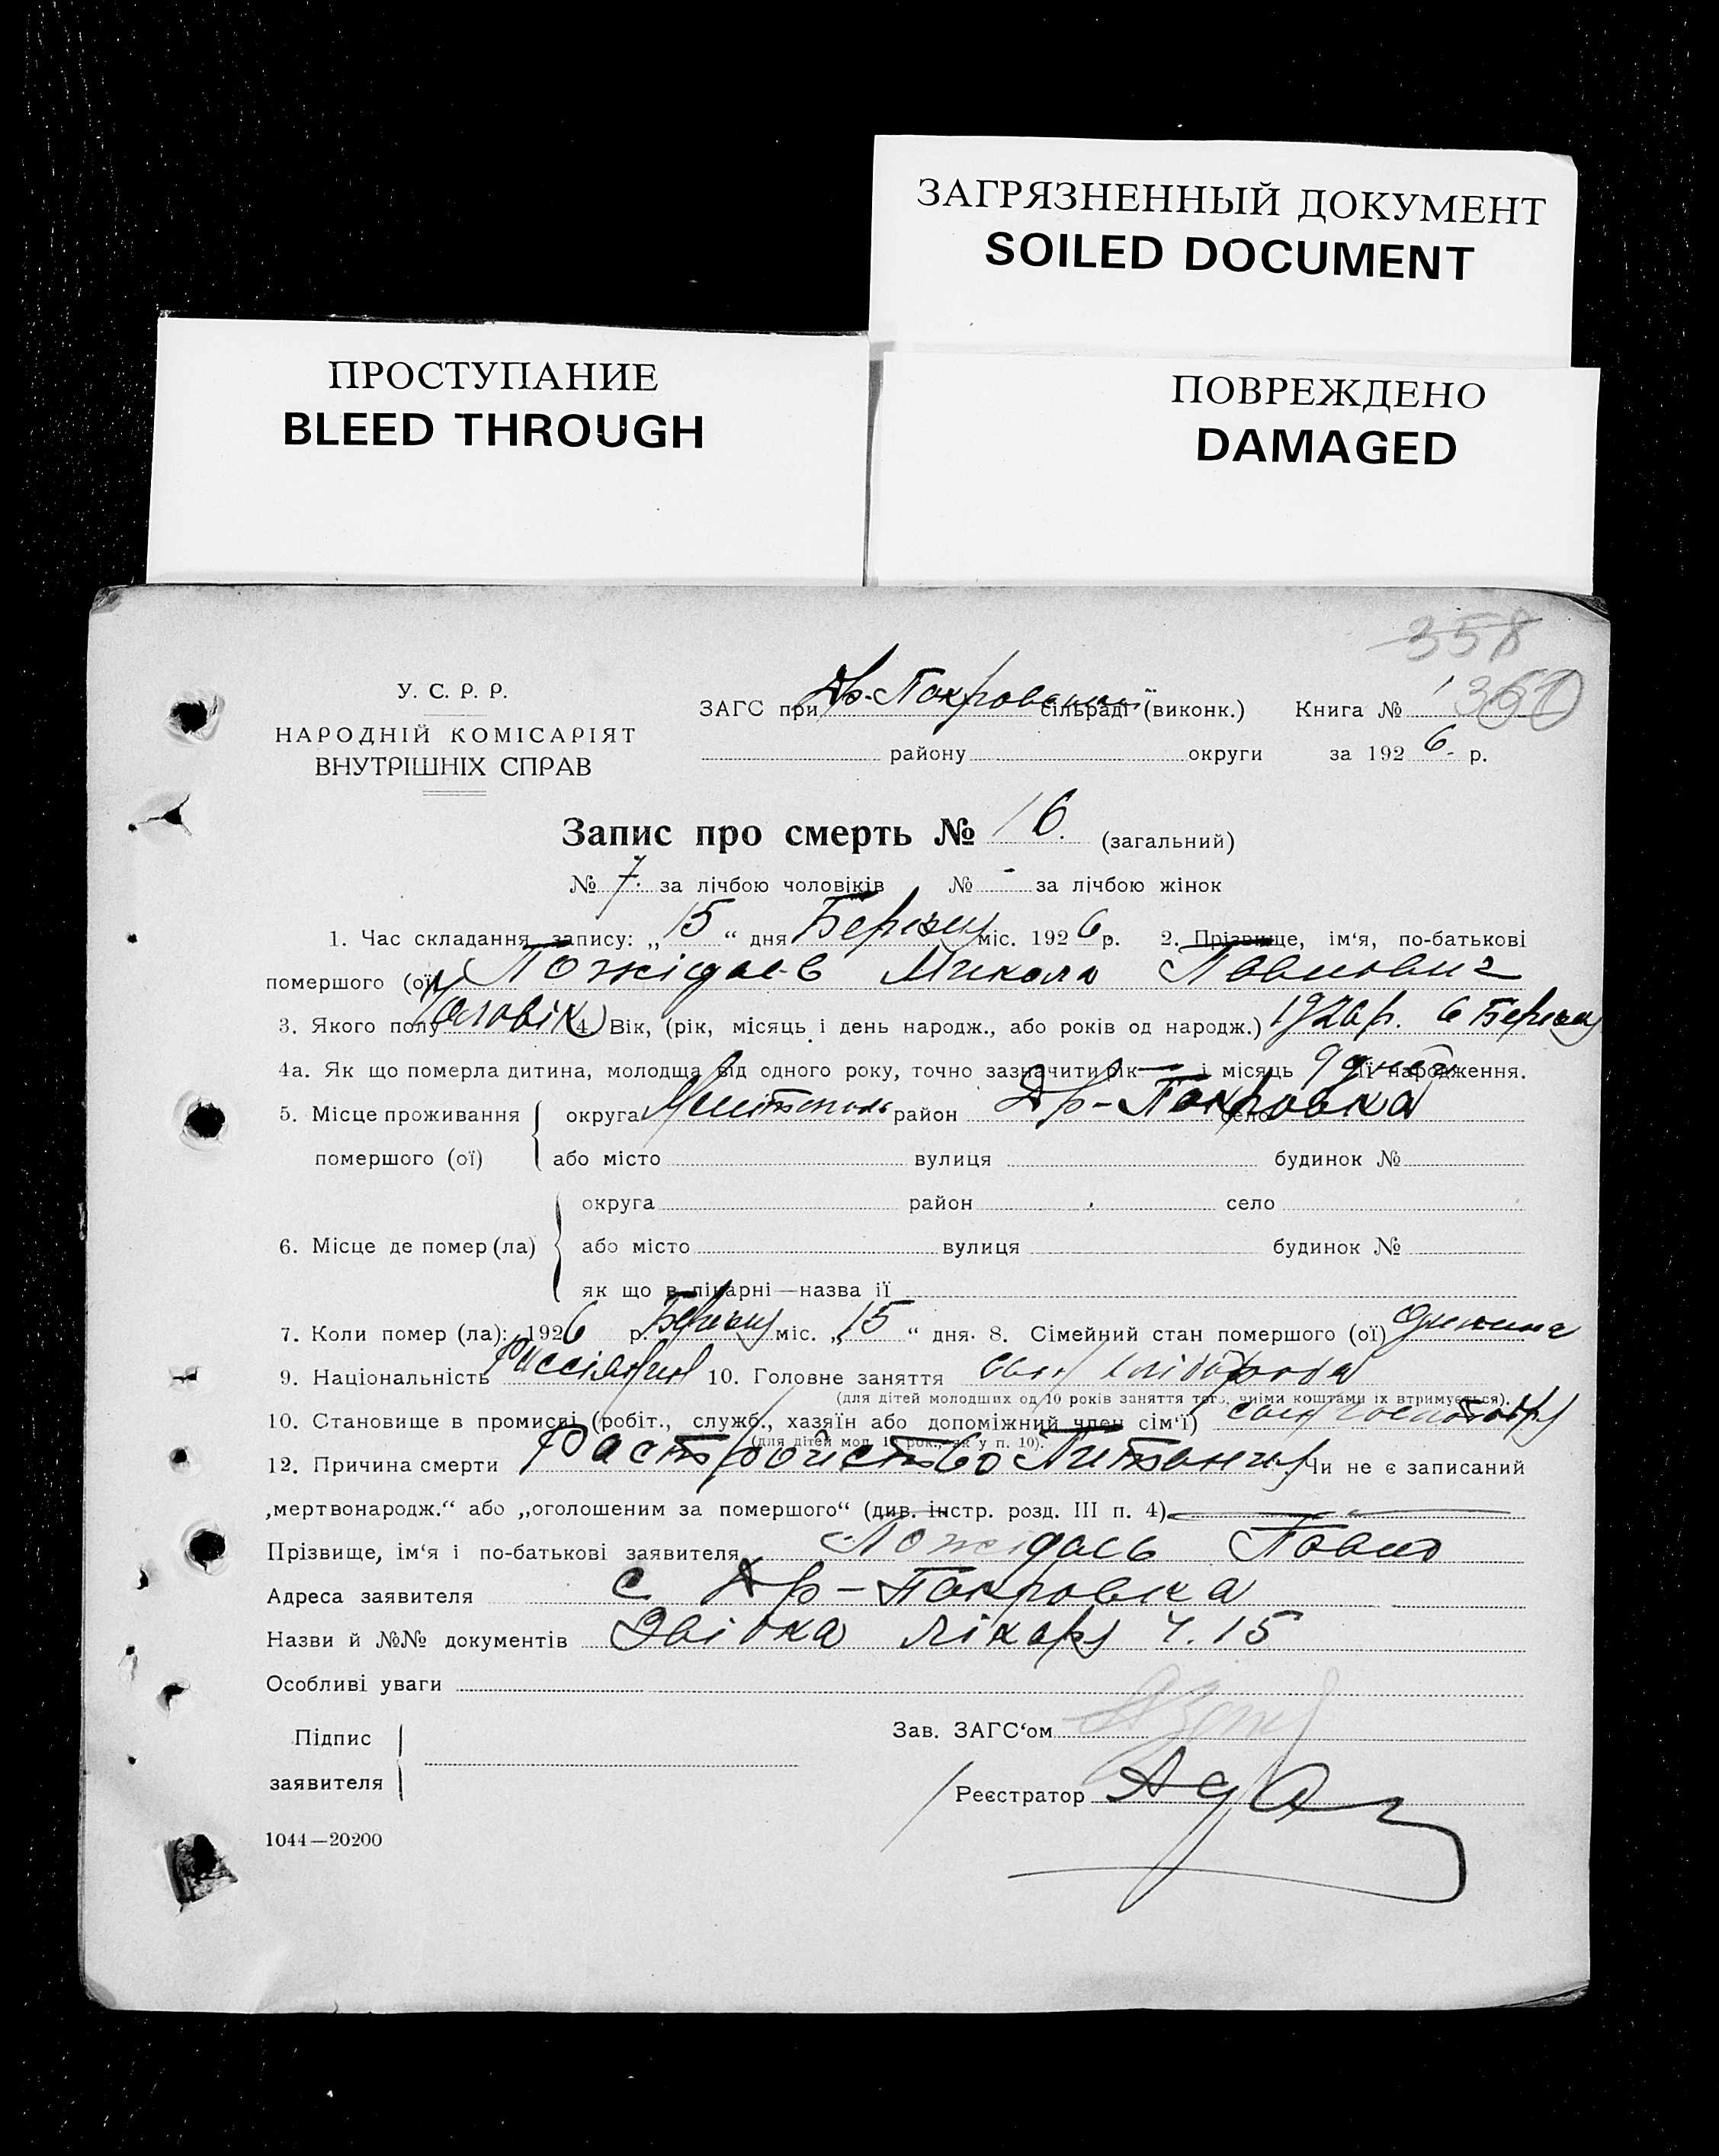 ЗАГРЯЗНЕННЫЙ ДОКУМЕНТ
SOILED DOCUMENT
ПРОСТУПАНИЕ
BLEED THROUGH
ПОВРЕЖДЕНО
DAMAGED
358
360
У. С. Р. Р.
НАРОДНІЙ КОМІСАРІЯТ
ВНУТРІШНІХ СПРАВ
ЗАГС при Др-Покровської сільраді (виконк.) Книга №
району округи за 1926 р.
Запис про смерть № 16. (загальний)
№ 7. за лічбою чоловіків № - за лічбою жінок
1. Час складання запису: „15“ дня Березня міс. 1926 р. 2. Прізвище, ім‘я, по-батькові
помершого (ої) Пожідаєв Микола Павлович
3. Якого полу чоловік 4. Вік, (рік, місяць і день народж., або років од народж.) 1926 р. 6 Березня
4а. Як що померла дитина, молодща від одного року, точно зазначити рік — і місяць 9 дней її народження.
5. Місце проживання округа Мелітополь район Др-Покровка село
помершого (ої) або місто вулиця будинок №
округа район село
6. Місце де помер (ла) або місто вулиця будинок №
як що в лікарні—назва ії
7. Коли помер (ла): 1926 р. Березня міс. „15“ дня. 8. Сімейний стан помершого (ої)
9. Національність 10. Головне заняття син хлібороба
(для дітей молодших од 10 років заняття того, чиїми коштами їх втримується).
10. Становище в промислі (робіт., служб., хазяїн або допоміжний член сім‘ї) син
(для дітей мол. 10 рок., як у п. 10).
12. Причина смерти Растройство Питания Чи не є записаний
„мертвонародж.“ або „оголошеним за помершого“ (див. інстр. розд. III п. 4)
Прізвище, ім‘я і по-батькові заявителя Пожідаєв Павло
Адреса заявителя с Др-Покровка
Назви й №№ документів Звідка лікаря ч. 15
Особливі уваги
Підпис
заявителя
Зав. ЗАГС‘ом
Реєстратор
1044—20200